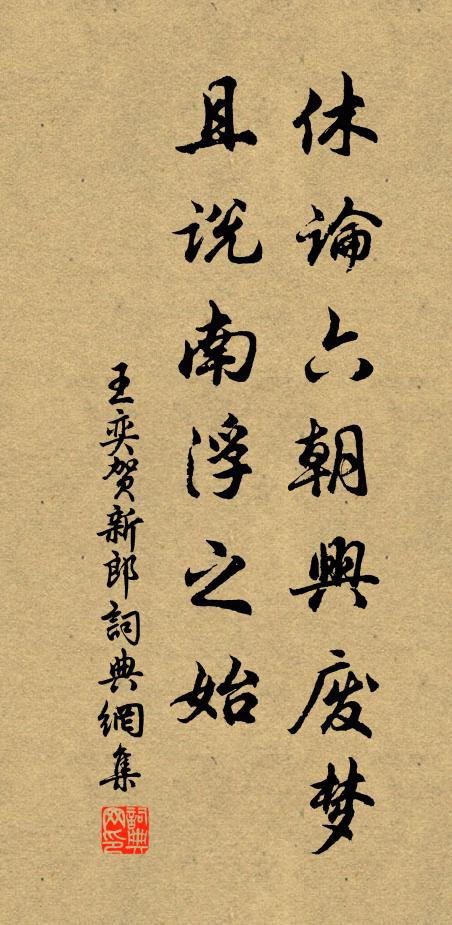 休論六朝興废梦
且说南浮之始
王奕贺新郎詞典網集
詞典网印